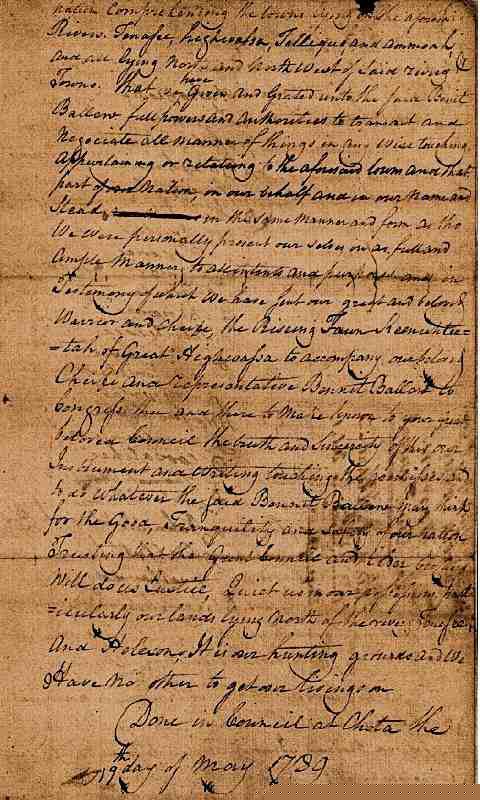 nation Comprehending the towns lying on the aforesd
Rivers Tenasee, highwassa, Tellequo and ammoah,
and all lying North and North West of said rivers
Towns. That we have Given and Grated unto the said Benit
Ballew full powers and authorities to transact and
Negociate all manner of things in any Wise touching
Appertaining or relating to the aforesaid town and that
part of Nation, in our behalf and in our Name and
Stead, in the same manner and form as tho
We were personally present our Selves in as full and
Ample Manner, to all intents and purposes and in
Testimony of which We have sent our great and beloved
Warrior and cheife, the Riseing Fawn
=tah of Great Highwassa to accompany our beloved
Cheife and representative Bennet Ballew to
Congress then and there to Make known to your great
beloved Council the truth and Sincerity of this our
Instrument and writing touching the
to do whatever the said Bennet Ballew may think
for the Good, Tranquility and Safety of our nation
Trusting that the Grand Council and
Will do us Justice, Quiet us in our possessions,
=icularly our lands lying North of the river Tenasee
And Holeson, It is our hunting grounds and We
Have No other to get our livings on
Done in Council at Chota the
19th day of May 1789